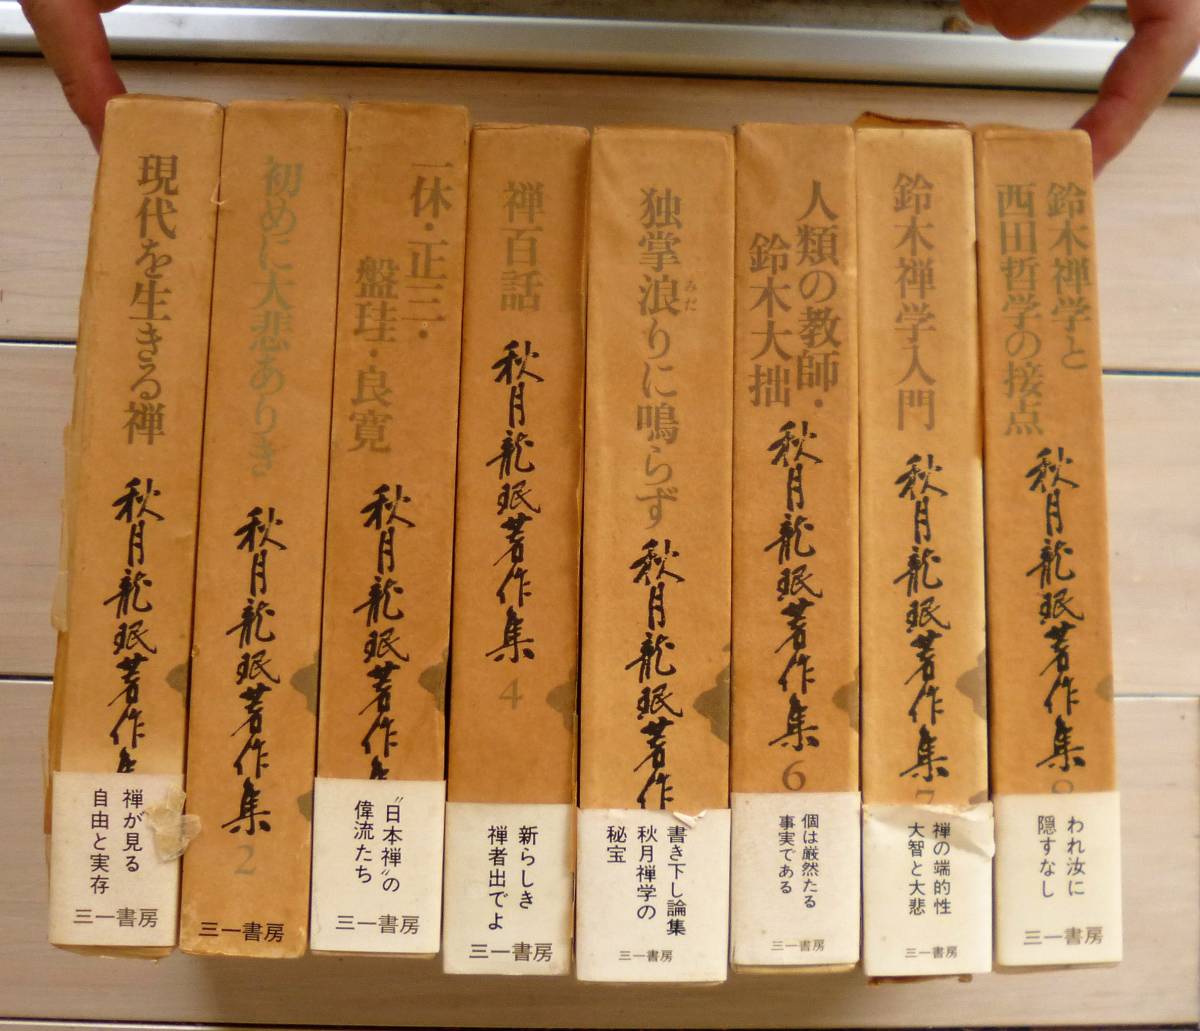 現代を生きる禅
秋月龍珉著作集
禅が見る
自由と実存
三一書房
初めに大悲ありき
秋月龍珉著作集
2
三一書房
一休・正三・
盤珪・良寛
秋月龍珉著作集
"日本禅"の
偉流たち
三一書房
禅百話
秋月龍珉著作集
4
新らしき
禅者出でよ
三一書房
独掌浪りに鳴らず
みだ
秋月龍珉著作
書き下し論集
秋月禅学の
秘宝
三一書房
人類の教師・
鈴木大拙
秋月龍珉著作集
6
個は厳然たる
事実である
三一書房
鈴木禅学入門
秋月龍珉著作集
7
禅の端的性
大智と大悲
三一書房
鈴木禅学と
西田哲学の接点
秋月龍珉著作集
8
われ汝に
隠すなし
三一書房